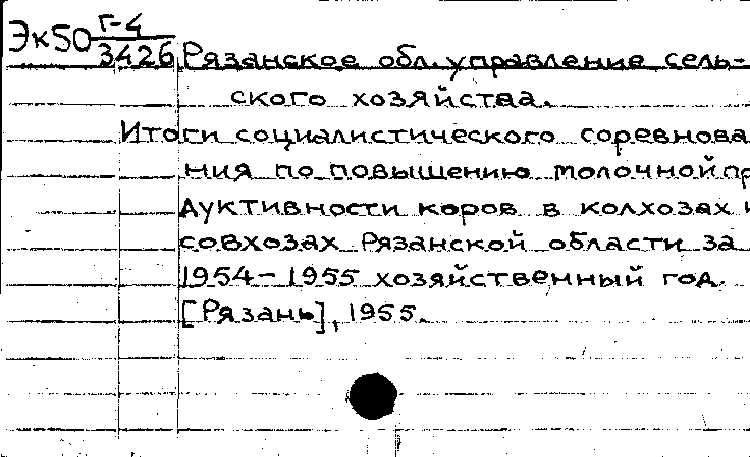 Эк50 Г-4
3426 Рязанское обл. управление сель-
ского хозяйства.
Итоги социалистического соревнова
ния по повышению молочной пр
дуктивности коров в колхозах и
совхозах Рязанской области за
1954-1955 хозяйственный год.
[Рязань], 1955.